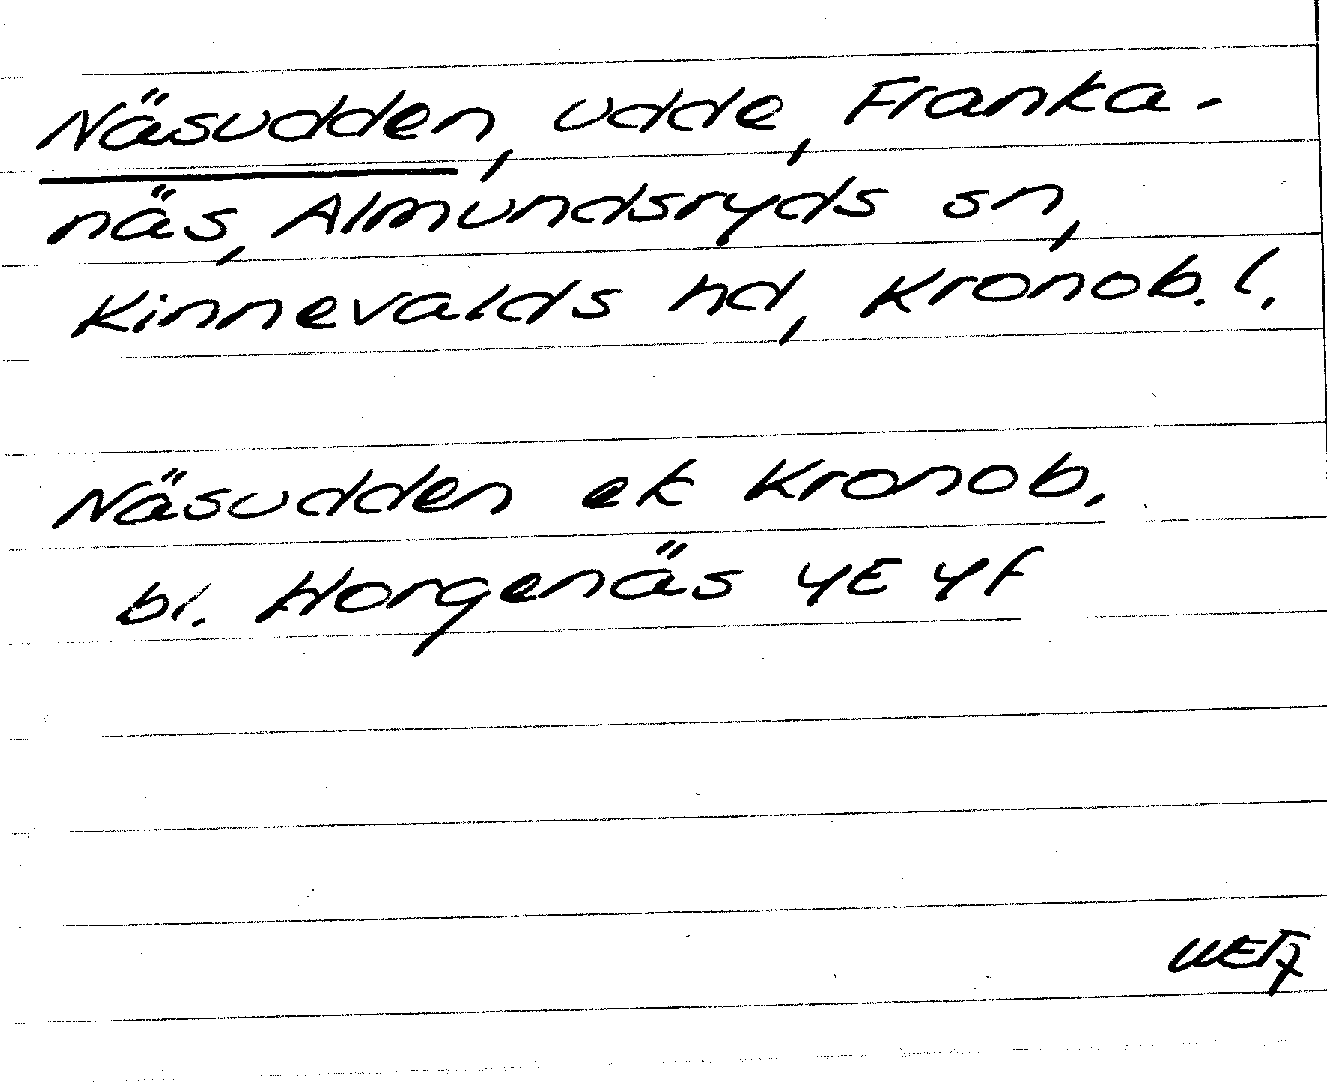 Näsudden, udde, Franka-
näs, Almundsryds sn,
Kinnevalds hd, Kronob. l.
Näsudden ek Kronob.
bl. Horgenäs 4E 4f